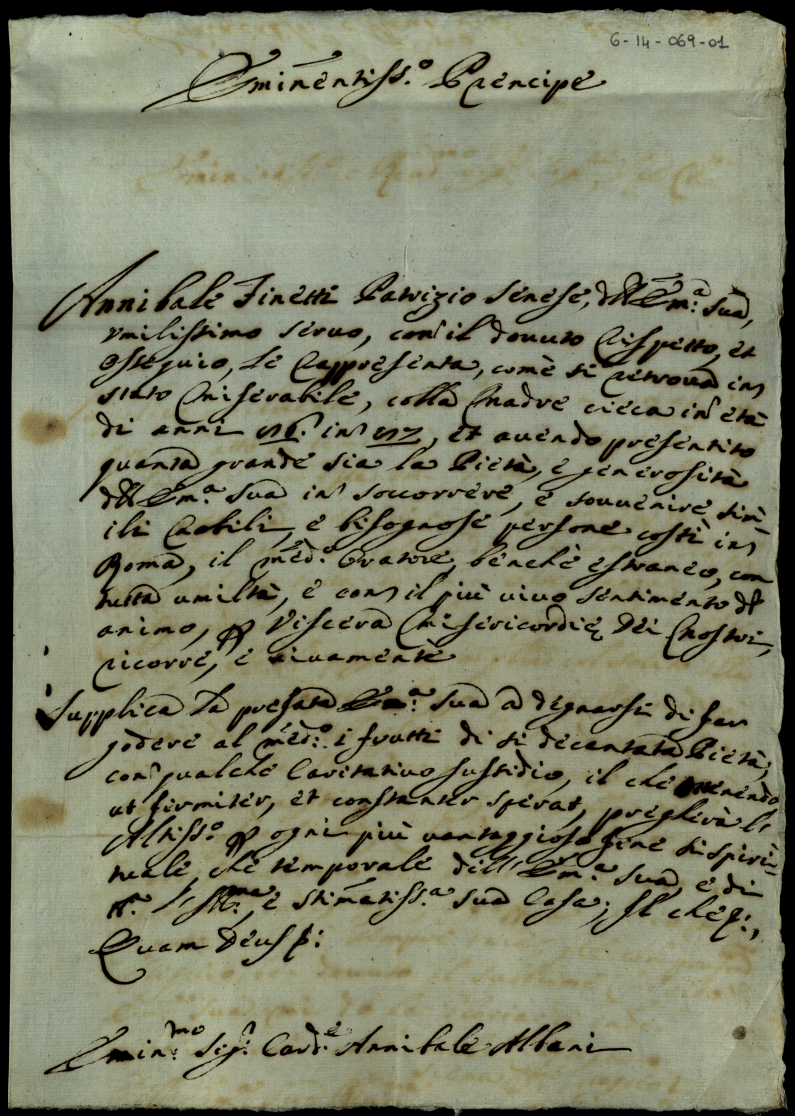 6-14-069-01
Eminentiss.º Prencipe
Annibale Finetti Patrizio Senese, dell'Em.ª Sua,
umilissimo servo, con il dovuto rispetto, et
ossequio, le rappresenta, come si ritrova in
stato miserabile, colla Madre cieca in età
di anni 76. in 77, et avendo presentito
quanta grande sia la Pietà, e generosità
dell'Em.ª Sua in soccorrere, e souvenire sim-
ili nobili, e bisognose persone costì in
Roma, il med.º Oratore, benchè estraneo, con
tutta umiltà, e con il più vivo sentimento d'
animo, p Viscera Misericordię Dei Nostri,
ricorre, e vivamente
Supplica la prefata Em.ª Sua a degnarsi di far
godere al med.º i frutti di sì decantata Pietà,
con qualche Caritativo sussidio, il che ottenendo,
ut firmiter, et constanter sperat, pregherà l'
Altiss.º p ogni più vantaggioso fine sì spiri-
tuale, che temporale dell'Em.ª Sua, e di
tt.ª l'Ill.ma, e stimatiss.ª sua Casa; Il che p:,
Quam Deus p:
Emin.mo Sig.r Card.e Annibale Albani